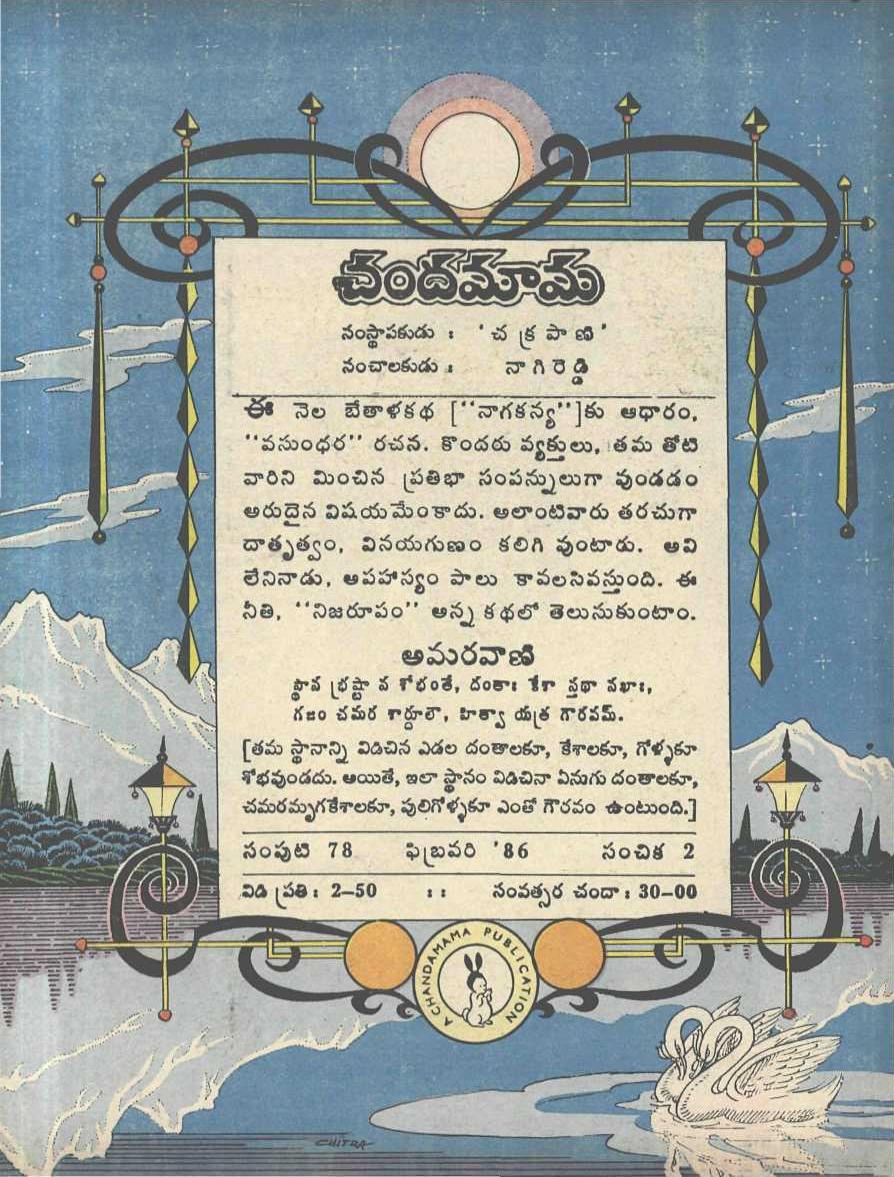 చందమామ
సంస్థాపకుడు : 'చ క్ర పా ణి'
సంచాలకుడు : నా గి రె డ్డి
ఈ నెల బేతాళకథ [''నాగకన్య'']కు ఆధారం,
''వసుంధర'' రచన. కొందరు వ్యక్తులు, తమ తోటి
వారిని మించిన ప్రతిభా సంపన్నులుగా వుండడం
అరుదైన విషయమేంకాదు. అలాంటివారు తరచుగా
దాతృత్వం, వినయగుణం కలిగి వుంటారు. అవి
లేనినాడు, అపహాస్యం పాలు కావలసివస్తుంది. ఈ
నీతి, ''నిజరూపం'' అన్న కథలో తెలుసుకుంటాం.
అమరవాణి
స్థాన భ్రష్టా న శోభంతే, దంతాః కేశా స్తథా నఖాః,
గజం చమర శార్దూలౌ, హిత్వా యత్ర గౌరవమ్.
[తమ స్థానాన్ని విడిచిన ఎడల దంతాలకూ, కేశాలకూ, గోళ్ళకూ
శోభవుండదు. అయితే, ఇలా స్థానం విడిచినా ఏనుగు దంతాలకూ,
చమరమృగకేశాలకూ, పులిగోళ్ళకూ ఎంతో గౌరవం ఉంటుంది.]
సంపుటి 78 ఫిబ్రవరి '86 సంచిక 2
విడి ప్రతి : 2-50 : : సంవత్సర చందా : 30-00
A CHANDAMAMA PUBLICATION
CHITRA